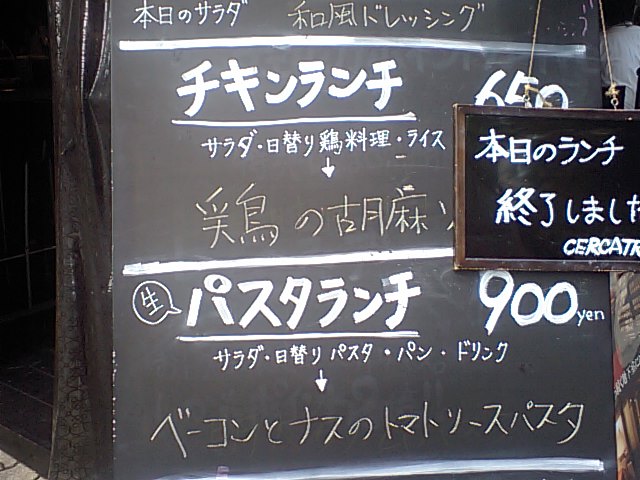 本日のサラダ 和風ドレッシング
チキンランチ 650
サラダ・日替り鶏料理・ライス
↓
鶏の胡麻
本日のランチ
終了しました
CERCATR
生 パスタランチ 900yen
サラダ・日替りパスタ・パン・ドリンク
↓
ベーコンとナスのトマトソースパスタ